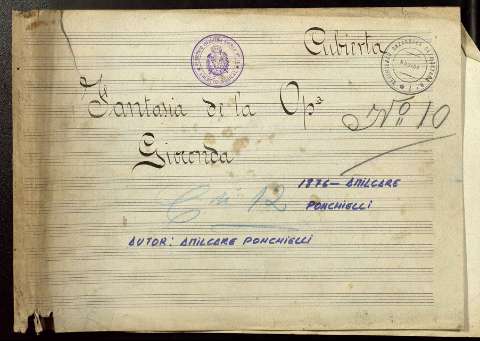 Cubierta
Fantasia de la Opª
Nº 10
Gioconda
12
1876 - AMILCARE
PONCHIELLI
AUTOR: AMILCARE PONCHIELLI